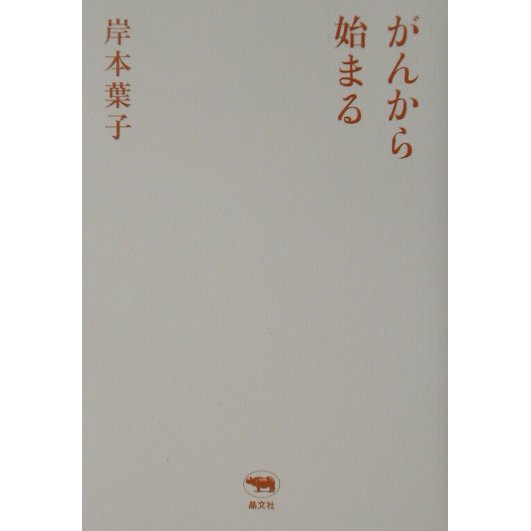 がんから
始まる
岸本葉子
晶文社